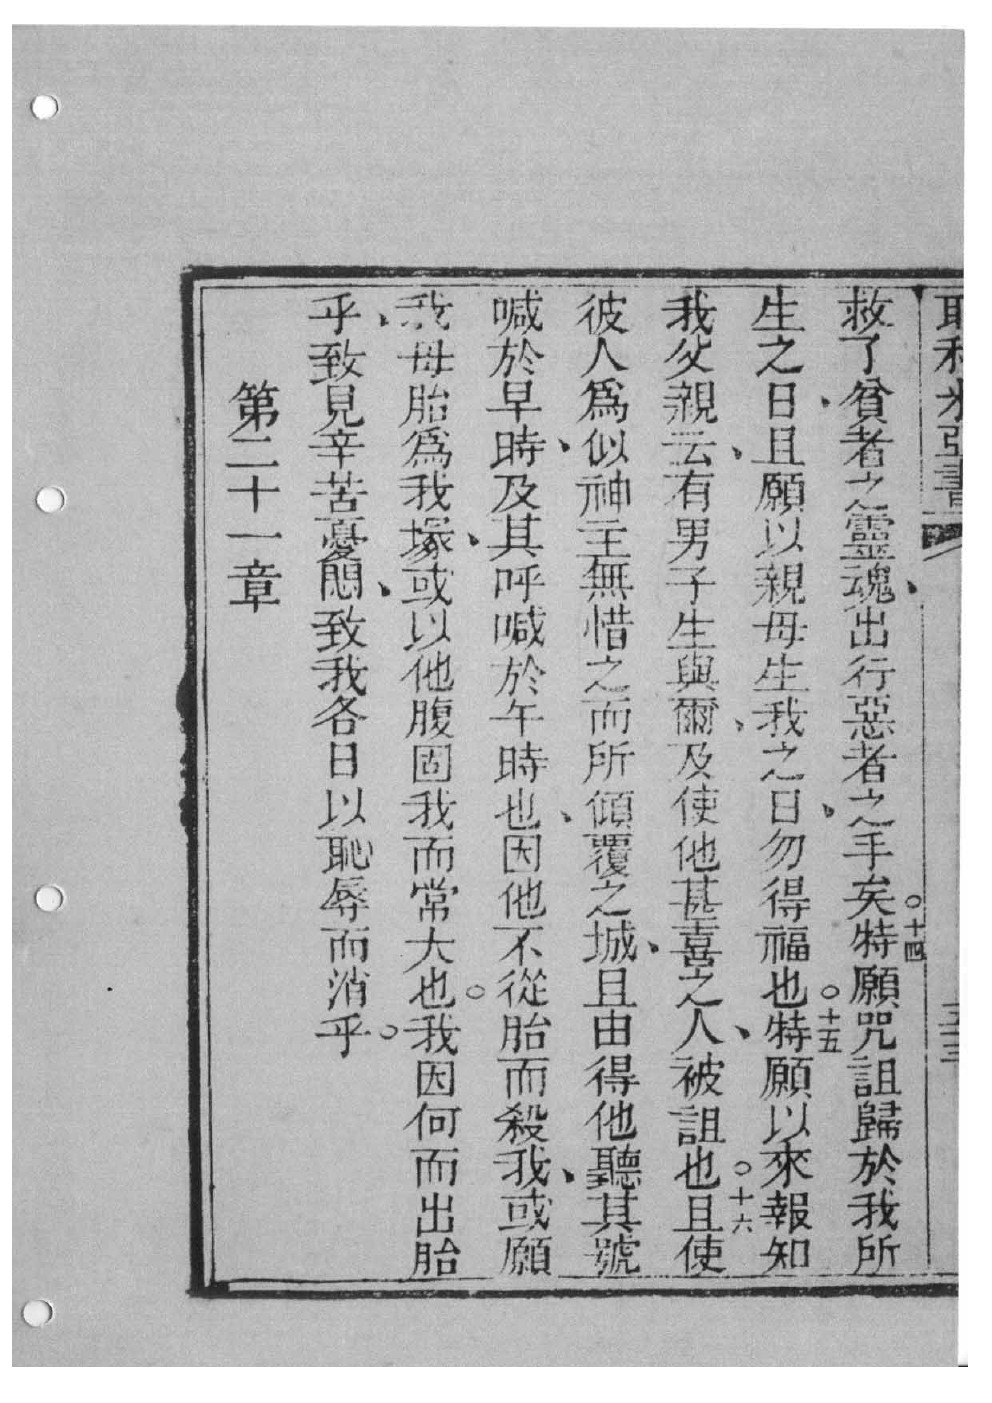 耶利米亞書
救了貧者之靈魂、出行惡者之手矣○十四特願咒詛歸於我所
生之日、且願以親母生我之日、勿得福也○十五特願以來報知
我父親云、有男子生與爾、及使他甚喜之人、被詛也○十六且使
彼人為似神主無惜之而所傾覆之城、且由得他聽其號
喊於早時、及其呼喊於午時也、因他不從胎而殺我、或願
我母胎為我塚、或以他腹固我而常大也○我因何而出胎
乎、致見辛苦憂悶、致我各日以恥辱而消乎○
第二十一章